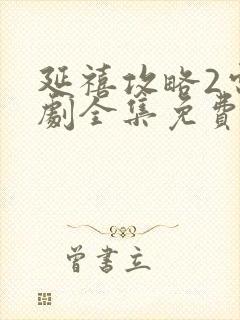 延禧攻略2
劇全集免費
曾書立